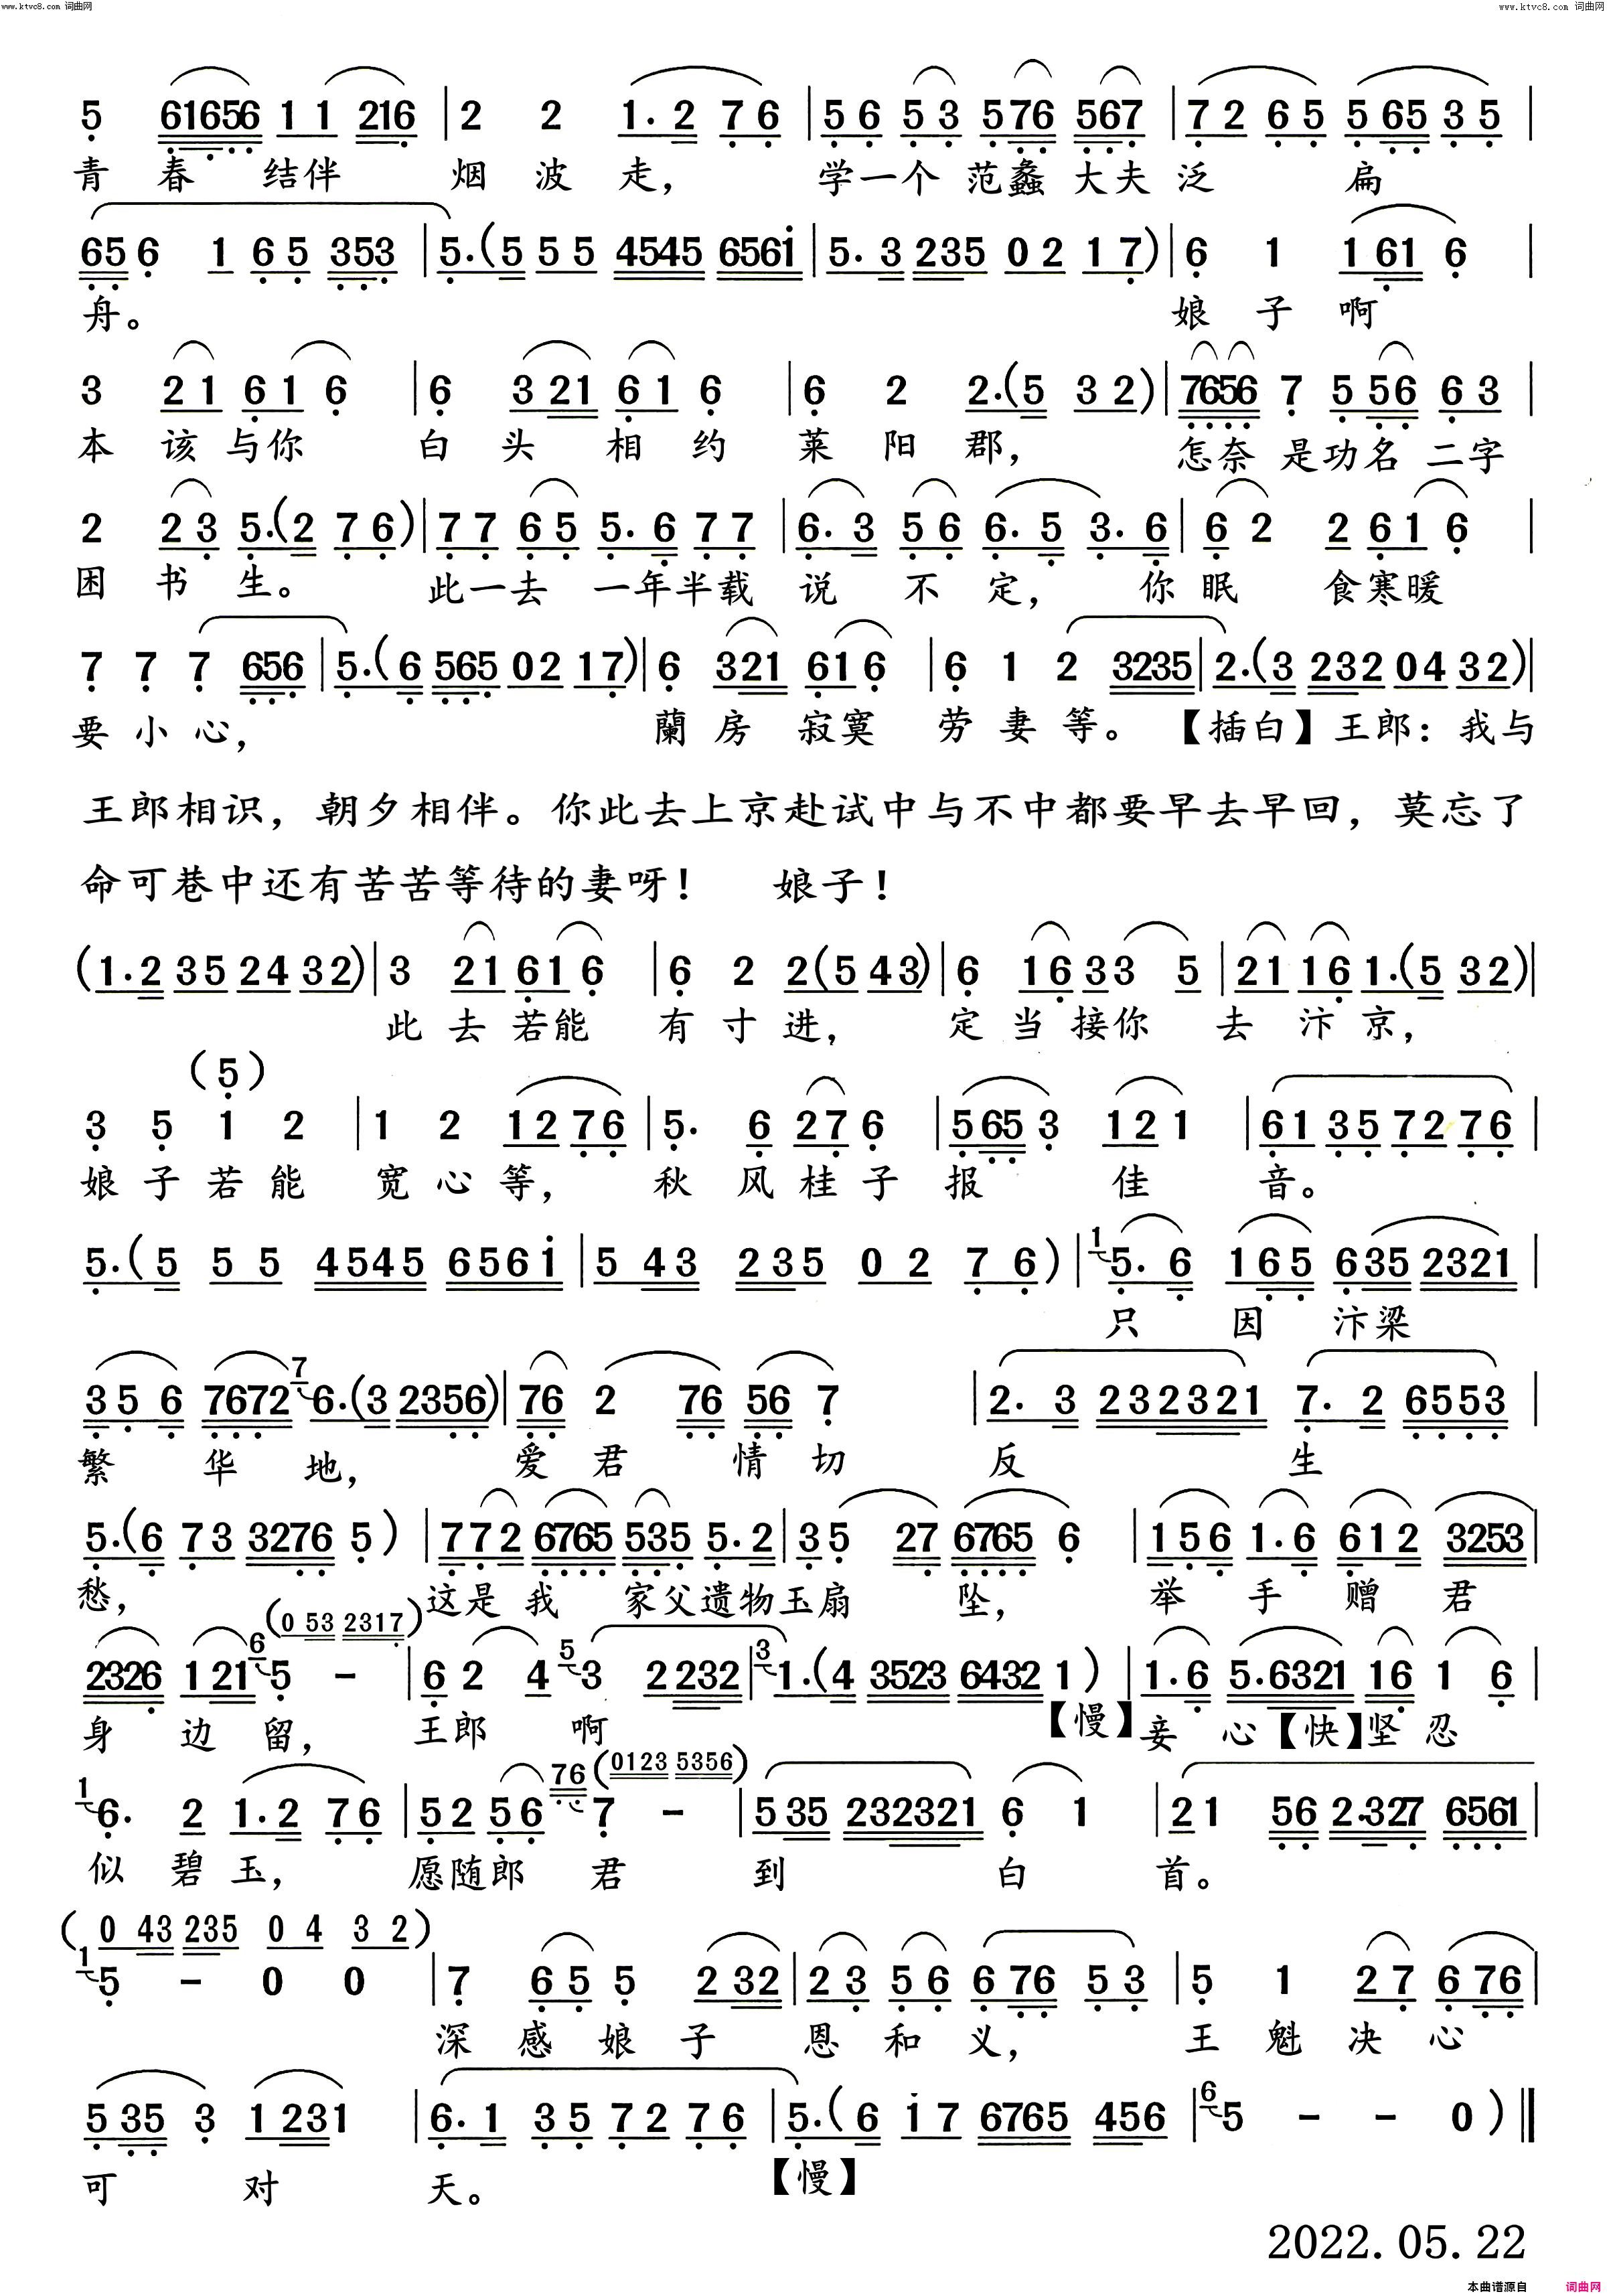 www.ktvc8.com 词曲网 www.ktvc8.com 词曲网
5 61656 1 1 216 | 2 2 1. 2 7 6 | 5 6 5 3 576 567 | 7 2 6 5 565 3 5 |
青 春 结伴 烟 波 走， 学一个 范蠡 大夫 泛 扁
65 6 1 6 5 353 | 5. (5 5 5 4545 6561 | 5. 3 235 0 2 1 7) | 6 1 161 6 |
舟。 娘 子 啊
3 2 1 6 1 6 | 6 321 6 1 6 | 6 2 2. (5 3 2) | 7656 7 556 6 3 |
本 该 与你 白 头 相 约 莱 阳 郡， 怎奈 是功名 二字
2 2 3 5. (2 7 6) | 7 7 6 5 5. 6 7 7 | 6. 3 5 6 6. 5 3. 6 | 6 2 2 6 1 6 |
困 书 生。 此一去 一年半载 说 不 定， 你 眠 食寒暖
7 7 7 656 | 5. (6 565 0 2 1 7) | 6 321 6 1 6 | 6 1 2 3235 | 2. (3 232 0 4 3 2) |
要 小 心， 蘭 房 寂寞 劳 妻 等。 【插白】王郎：我与
王郎相识，朝夕相伴。你此去上京赴试中与不中都要早去早回，莫忘了
命可巷中还有苦苦等待的妻呀！ 娘子！
(1. 2 3 5 2 4 3 2) | 3 2 1 6 1 6 | 6 2 2 (5 4 3) | 6 1 6 3 3 5 | 2 1 1 6 1. (5 3 2) |
此 去 若能 有 寸 进， 定 当 接你 去 汴 京，
(5)
3 5 1 2 | 1 2 1 2 7 6 | 5. 6 2 7 6 | 565 3 1 2 1 | 6 1 3 5 7 2 7 6 |
娘 子 若 能 宽 心 等， 秋 风 桂 子 报 佳 音。
5. (5 5 5 4545 6561 | 5 43 235 0 2 7 6) | 1 5. 6 165 635 2321 |
只 因 汴梁
3 5 6 7672 7 6. (3 2356) | 76 2 76 56 7 | 2. 3 232321 7. 2 6553 |
繁 华 地， 爱 君 情 切 反 生
5. (6 7 3 3276 5) | 772 6765 535 5. 2 | 3 5 27 6765 6 | 156 1. 6 612 3253 |
愁， 这是 我 家父遗物玉扇 坠， 举 手 赠 君
(0 53 2317)
2326 121 6 5 - | 6 2 4 5 3 2 232 | 3 1. (4 3523 6432 1) | 1. 6 5. 6321 16 1 6 |
身 边 留， 王郎 啊 【慢】妾 心【快】坚忍
(0123 5356)
1 6. 2 1. 2 7 6 | 5 2 5 6 76 7 - | 535 232321 6 1 | 2 1 56 2.327 6561 |
似 碧 玉， 愿随郎 君 到 白 首。
(0 43 235 0 4 3 2)
1 5 - 0 0 | 7 6 5 5 232 | 2 3 5 6 676 5 3 | 5 1 2 7 676 |
深 感 娘 子 恩 和 义， 王 魁 决 心
535 3 1231 | 6. 1 3 5 7 2 7 6 | 5. (6 1 7 6765 456 | 6 5 - - 0) ||
可 对 天。 【慢】
2022.05.22
本曲谱源自 词曲网